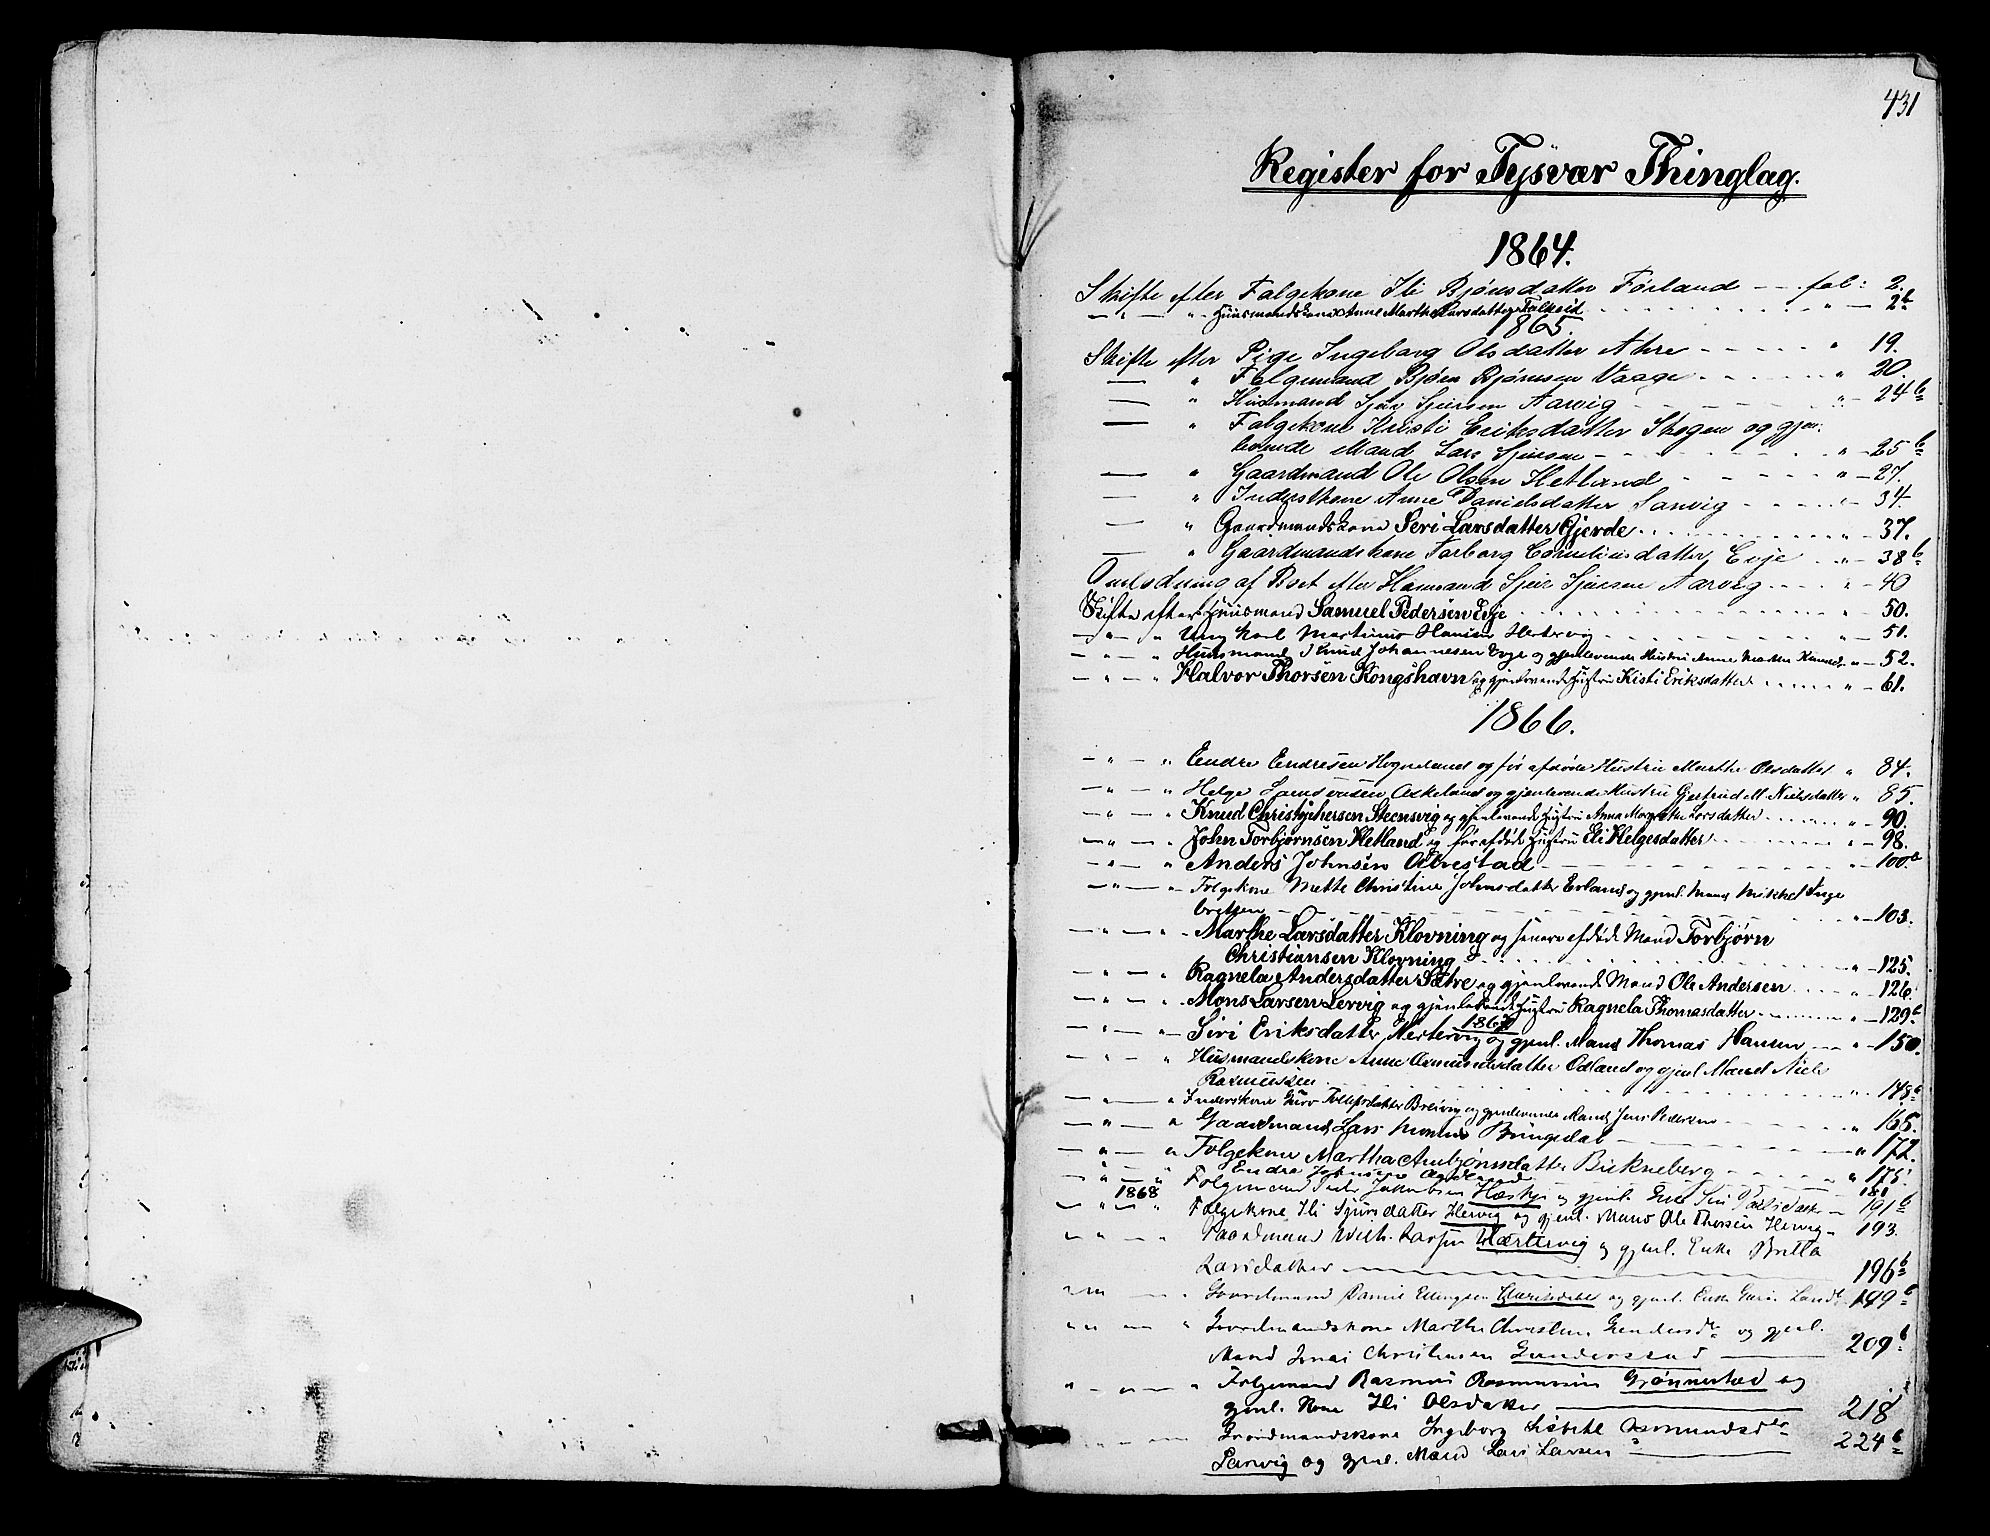 431
Register for Tysvær Thinglag.
1864.
Skifte efter Folgekone Ili Bjørnsdatter Førland - - - fol: 2.
— " — " Huusmandskone Anne Marthe Larsdatter Falkeid - - - " — 2b
1865.
Skifte efter Pige Ingeborg Olsdatter Akre - - - - - " 19.
— " Folgemand Bjørn Bjørnsen Vaage - - - - - " 20.
— " Husmand Sjur Sjursen Aarvig - - - - - " - 24b
— " Folgekone Kristi Eriksdatter Stegen og gjen-
levende Mand Lars Sjursen - - - - - " - 25b
— " Gaardmand Ole Olsen Hetland - - - - - " - 27.
— " Inderstkone Anne Danielsdatter Sanvig - - - - - " - 34.
— " Gaardmandskone Seri Larsdatter Gjerde - - - - - " 37.
— " Gaardmandskone Torborg Corneliusdatter Evje - - - " - 38b
Omlodning af Boet efter Husmand Sjur Sjursen Aarvig - - - " - 40
Skifte efter Huusmand Samuel Pedersen Evje - - - - - " - 50.
— " — " Ung Karl Martinus Hansen Hertervig - - - - - " - 51.
— " — " Huusmand Knud Johannesen Evje og gjenlevende Hustru Anne Malta Knuds - " - 52.
— " — " Halvor Thorsen Kongshavn og gjenlevende Hustru Kisti Eriksdatter - - - " - 61.
1866.
— " — " Endre Endresen Hogneland og før afdøde Hustru Marthe Olsdatter " 84.
— " — " Helge Askeland og gjenlevende Hustru Gjertrud M. Nielsdatter " 85.
— " — " Knud Christophersen Steensvig og gjenlevende Hustru Anna Margrethe Larsdatter - - - " - 90.
— " — " John Torbjørnsen Hetland og før afdøde Hustru Eli Helgesdatter - - - " - 98.
— " — " Anders Johnsen Aarestad - - - - - " - 100b
— " — " Folgekone Mette Christine Johnsdatter Erland og gjenl. Mand Mikkel Inge
bretsen - - - - - " - 103.
— " — " Marthe Larsdatter Klovning og senere afdøde Mand Torbjørn
Christiansen Klovning - - - - - " - 125.
— " — " Ragnela Andersdatter Sætre og gjenlevende Mand Ole Andersen - - - " - 126.
— " — " Mons Larsen Lervig og gjenlevende Hustru Ragnela Thomasdatter - - - " - 129b
1867
— " — " Siri Eriksdatter Hertervig og gjenl. Mand Thomas Hansen — " - 150.
" — " — " Husmandskone Anne Osmundsdatter Odland og gjenl Mand Niels
Rasmussen - - - - - " 148b
— " — " Inderskone Guro Tollefsdatter Breivig og gjenlevende Mand Jens Pedersen - - - " 165.
— " — " Gaardmand Lars Bringedal - - - - - " 172.
— " — " Folgekone Martha Arnbjørnsdatter Birkneberg - - - - - " 175.
— " — " Endre Johnsen - - - - - 181
1868 Folgemand Peder Jakobsen Hæskje og gjenl. Enke Siri — 191b
" — " — " Folgekone Ili Sjursdatter Hervig og gjenl. Mand Ole Thorsen Hervig - 193.
— " — " Gaardmand Larsen Hærtervig og gjenl. Enke Britta
Larsdatter — 196b
" — " Gaardmand Daniel Ellingsen og gjenl. Enke — 199b
" " — " Gaardmandskone Marthe Christine og gjenl.
Mand Jonas Christensen Gunderstad — 209b
" — " — " Folgemand Rasmus Rasmussen Grønnestad og
gjenl. Kone Ili Olsdatter — 218
" — " Gaardmandskone Ingeborg Lisbeth Osmundsdtr
Sanvig og gjenl. Mand Lars Larsen — 224b